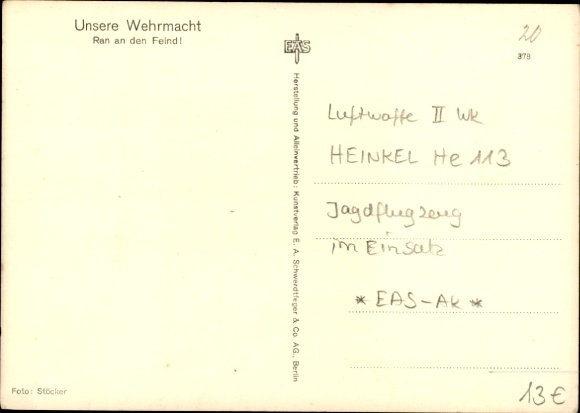 Unsere Wehrmacht
Ran an den Feind!
EAS
20
378
Herstellung und Alleinvertrieb: Kunstverlag E. A. Schwerdtfeger & Co. AG., Berlin
Luftwaffe II Wk
HEINKEL He 113
Jagdflugzeug
im Einsatz
* EAS-AK *
Foto: Stöcker
13€